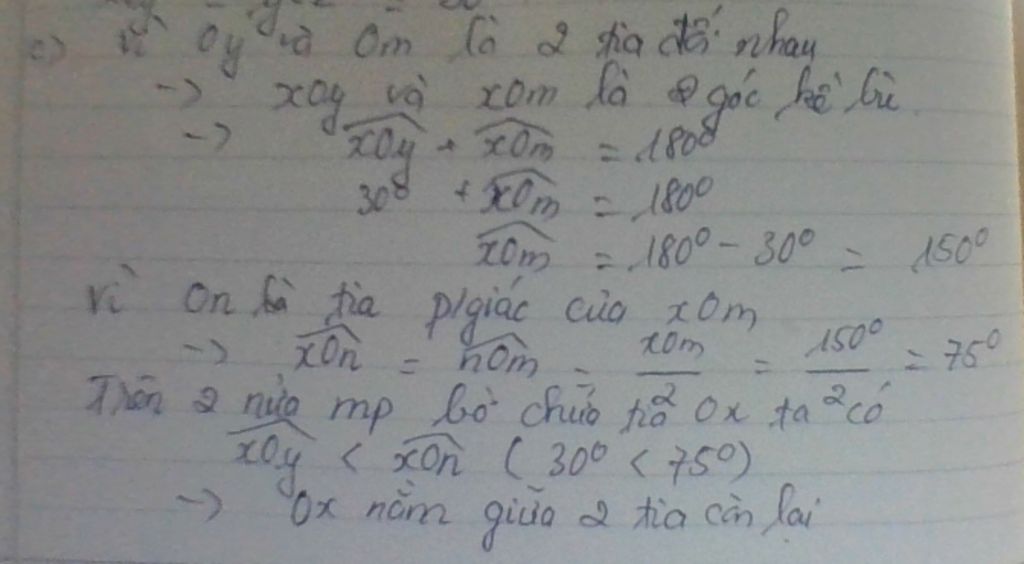 c) Vì Oy và Om là 2 tia đối nhau
-> xOy và xOm là 2 góc kề bù
-> xOy + xOm = 180⁰
30⁰ + xOm = 180⁰
xOm = 180⁰ - 30⁰ = 150⁰
Vì On là tia p/giác của xOm
-> xOn = nOm = xOm/2 = 150⁰/2 = 75⁰
Trên 2 nửa mp bờ chứa tia Ox ta có
xOy < xOn (30⁰ < 75⁰)
-> Ox nằm giữa 2 tia còn lại